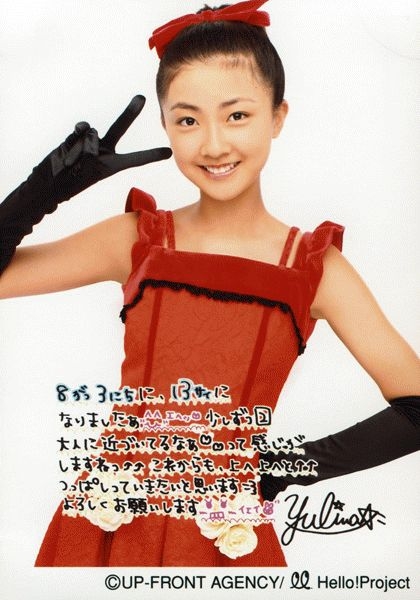 8がつ3にちに、13才に
なりましたぁ^^エヘッ 少しずつ
大人に近づいてるなぁ って感じが
しますねっ これからも、上へ上へと
つっぱしっていきたいと思います
よろしくお願いします
Yulina
©UP-FRONT AGENCY/ Hello!Project